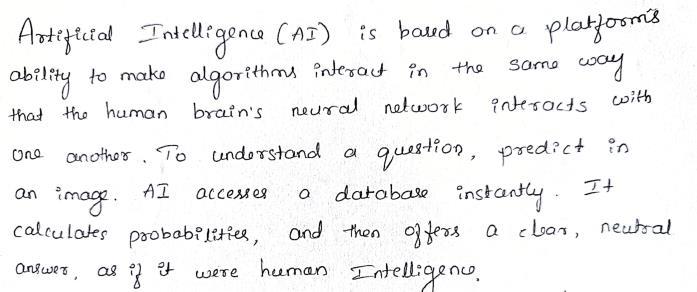 Artificial Intelligence (AI) is based on a platform's
ability to make algorithms interact in the same way
that the human brain's neural network interacts with
one another. To understand a question, predict in
an image. AI accesses a database instantly. It
calculates probabilities, and then offers a clear, neutral
answer, as if it were human Intelligence.